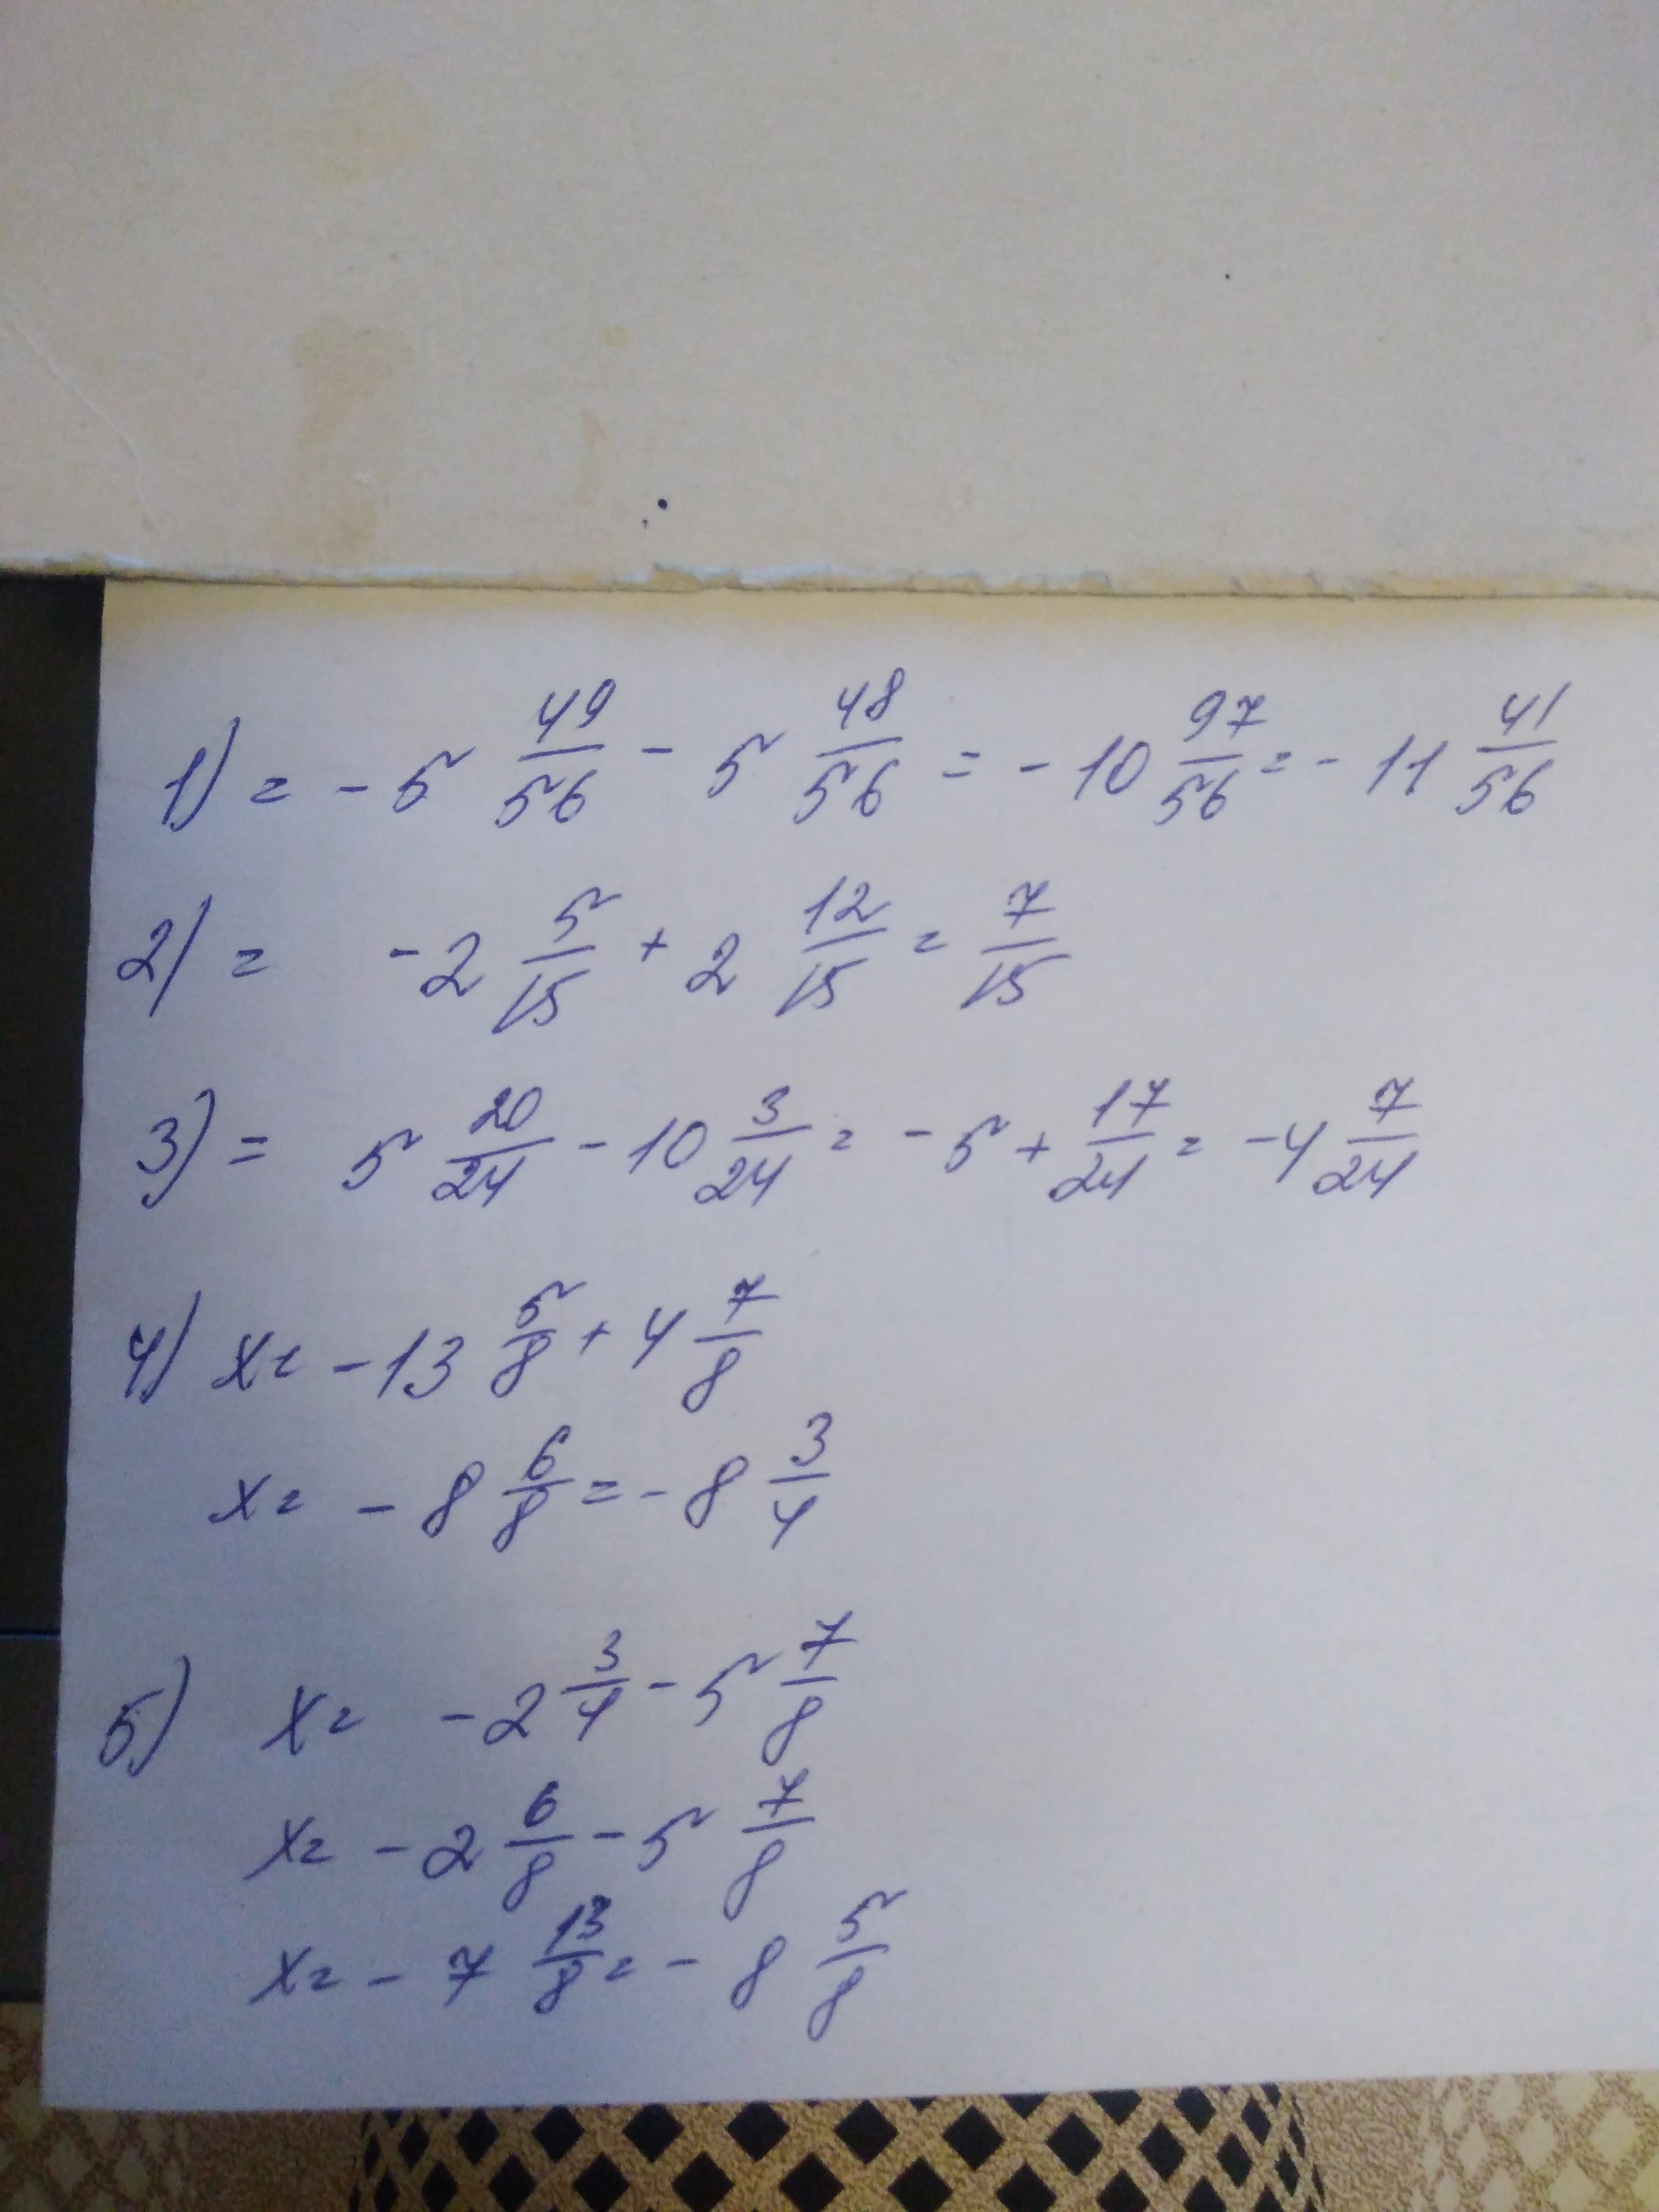 1) = - 5 49/56 - 5 48/56 = - 10 97/56 = - 11 41/56
2) = - 2 5/15 + 2 12/15 = 7/15
3) = 5 20/24 - 10 3/24 = - 5 + 17/24 = - 4 7/24
4) x = - 13 5/8 + 4 7/8
x = - 8 6/8 = - 8 3/4
5) x = - 2 3/4 - 5 7/8
x = - 2 6/8 - 5 7/8
x = - 7 13/8 = - 8 5/8